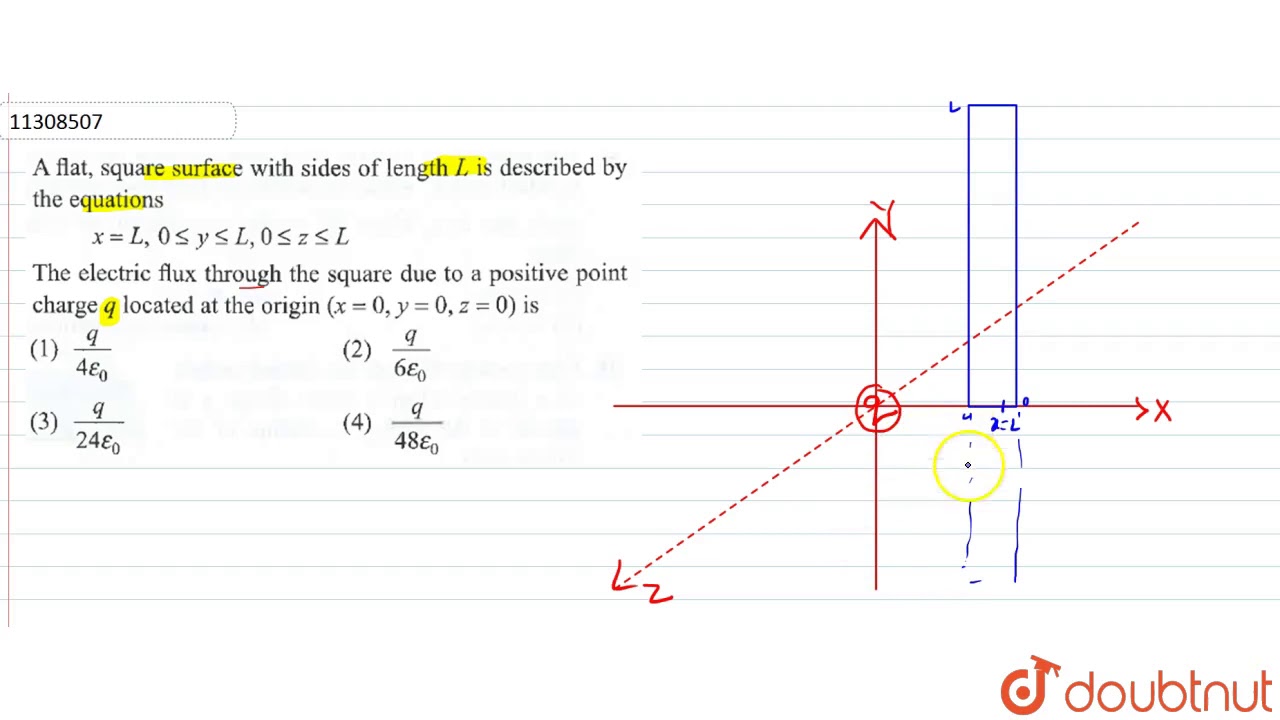 11308507
A flat, square surface with sides of length L is described by
the equations
x = L, 0 ≤ y ≤ L, 0 ≤ z ≤ L
The electric flux through the square due to a positive point
charge q located at the origin (x = 0, y = 0, z = 0) is
(1) q/4ε₀ (2) q/6ε₀
(3) q/24ε₀ (4) q/48ε₀
L
Y
q
X
Z
doubtnut